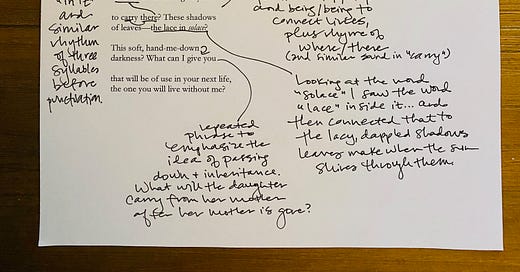 "in it"
and
similar
rhythm
of three
syllables
before
punctuation.
to carry there? These shadows
of leaves—the lace in solace?
This soft, hand-me-down
darkness? What can I give you
that will be of use in your next life,
the one you will live without me?
and being/being to
connect lines,
plus rhyme of
where/there
(and similar sound in "carry")
Looking at the word
"solace" I saw the word
"lace" inside it... and
then connected that to
the lacy, dappled shadows
leaves make when the sun
shines through them.
repeated
phrase to
emphasize the
idea of passing
down + inheritance.
What will the daughter
carry from her mother
after her mother is gone?